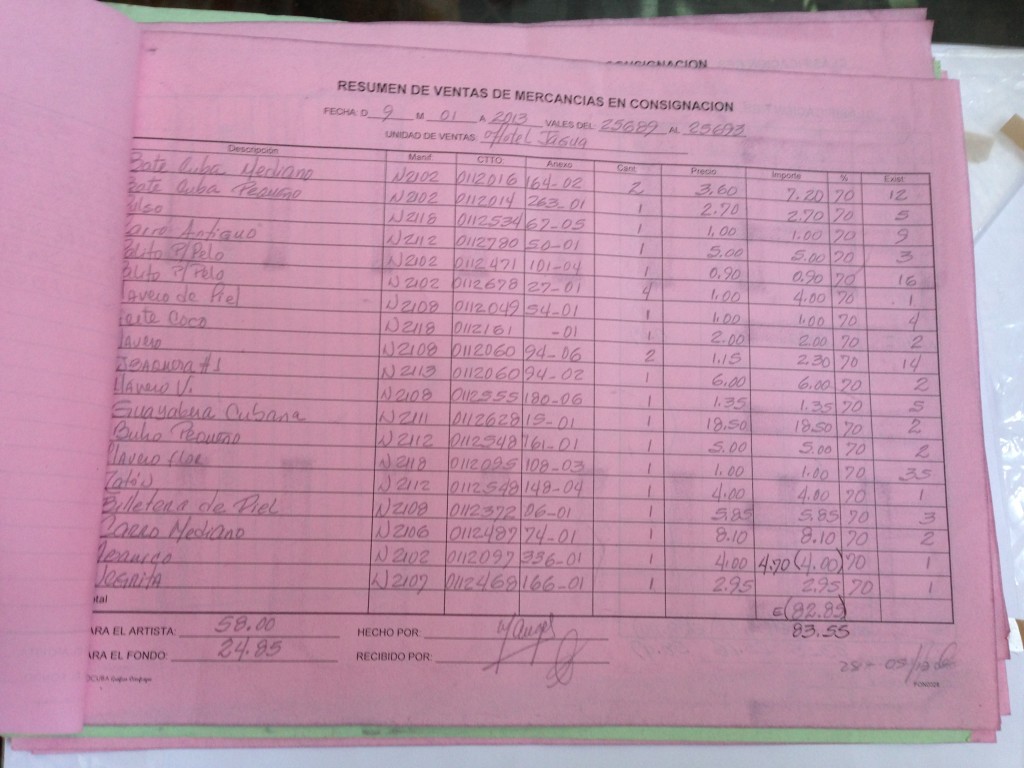 CONSIGNACION
RESUMEN DE VENTAS DE MERCANCIAS EN CONSIGNACION
FECHA: D 9 M 01 A 2013 VALES DEL: 25689 AL 25693
UNIDAD DE VENTAS: Hotel Jagua
Descripción Manif CTTO Anexo Cant Precio Importe % Exist
Bate Cuba Mediano N2102 0112016 164-02 2 3.60 7.20 70 12
Bate Cuba Pequeño N2102 0112014 263-01 1 2.70 2.70 70 5
ulso N2118 0112534 67-05 1 1.00 1.00 70 9
arro Antiguo N2112 0112780 50-01 1 5.00 5.00 70 3
alito P/Pelo N2102 0112471 101-04 1 0.90 0.90 70 16
alito P/Pelo N2102 0112678 27-01 4 1.00 4.00 70 1
lavero de Piel N2108 0112049 54-01 1 1.00 1.00 70 4
Coco N2118 0112161 -01 1 2.00 2.00 70 2
lavero N2108 0112060 94-06 2 1.15 2.30 70 14
#1 N2113 0112060 94-02 1 6.00 6.00 70 2
llavero V. N2108 0112555 180-06 1 1.35 1.35 70 5
Guayabera Cubana N2111 0112628 15-01 1 18.50 18.50 70 2
Buho Pequeño N2112 0112548 161-01 1 5.00 5.00 70 2
llavero flor N2118 0112095 108-03 1 1.00 1.00 70 35
N2112 0112548 148-04 1 4.00 4.00 70 1
Billetera de Piel N2108 0112372 06-01 1 5.85 5.85 70 3
Carro Mediano N2106 0112487 74-01 1 8.10 8.10 70 2
N2102 0112097 336-01 1 4.00 4.70 (4.00) 70 1
Negrita N2107 0112468 166-01 1 2.95 2.95 70 1
tal (82.85)
83.55
ARA EL ARTISTA: 58.00 HECHO POR:
ARA EL FONDO: 24.85 RECIBIDO POR: